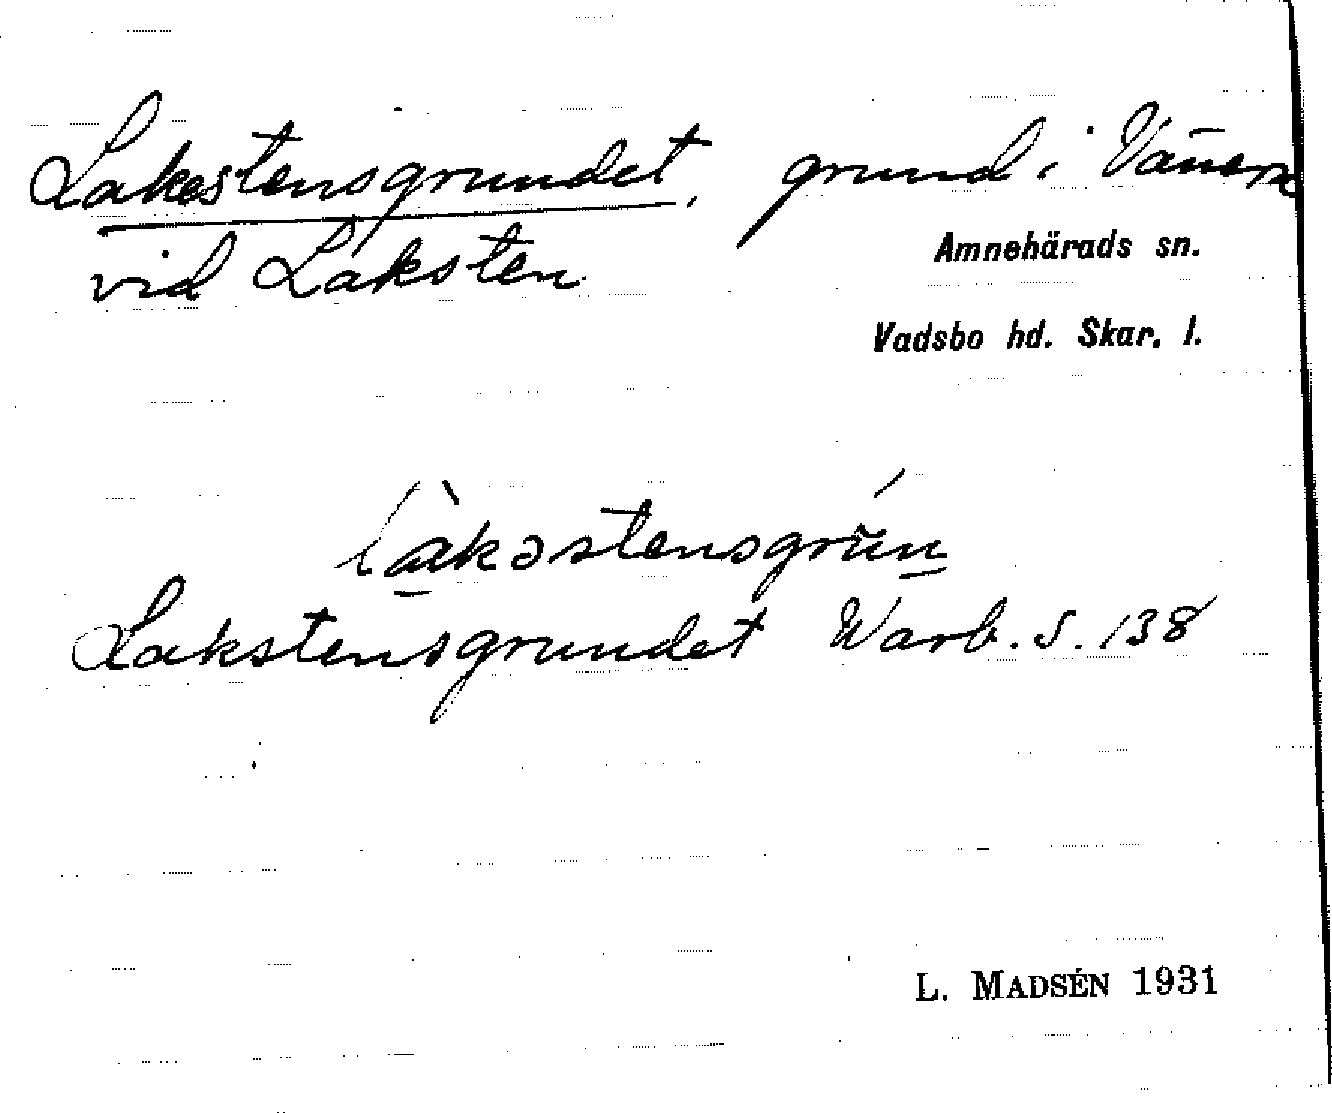 Lakestensgrundet, grund i Vänern
vid Laksten
Amnehärads sn.
Vadsbo hd. Skar. l.
làkəstensgrún
Lakstensgrundet Warb. S. 138
L. MADSÉN 1931